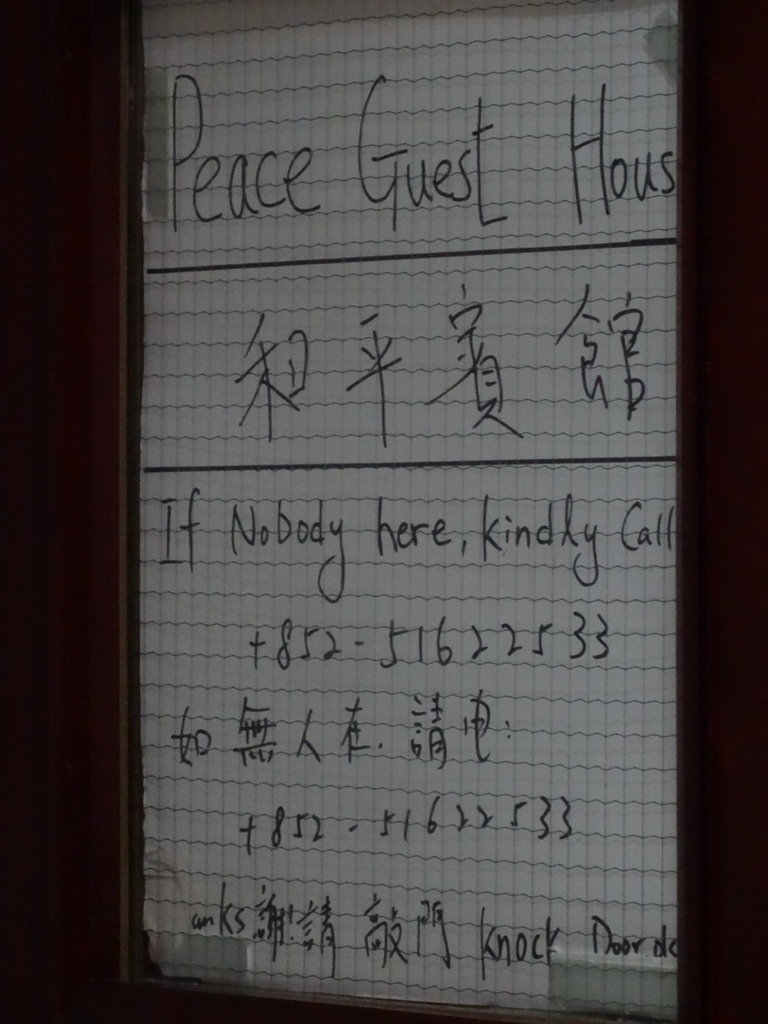 Peace Guest Hous
和平賓館
If Nobody here, kindly Call
+852-51622533
如無人在.請电:
+852-51622533
anks 謝!請敲門 Knock Door